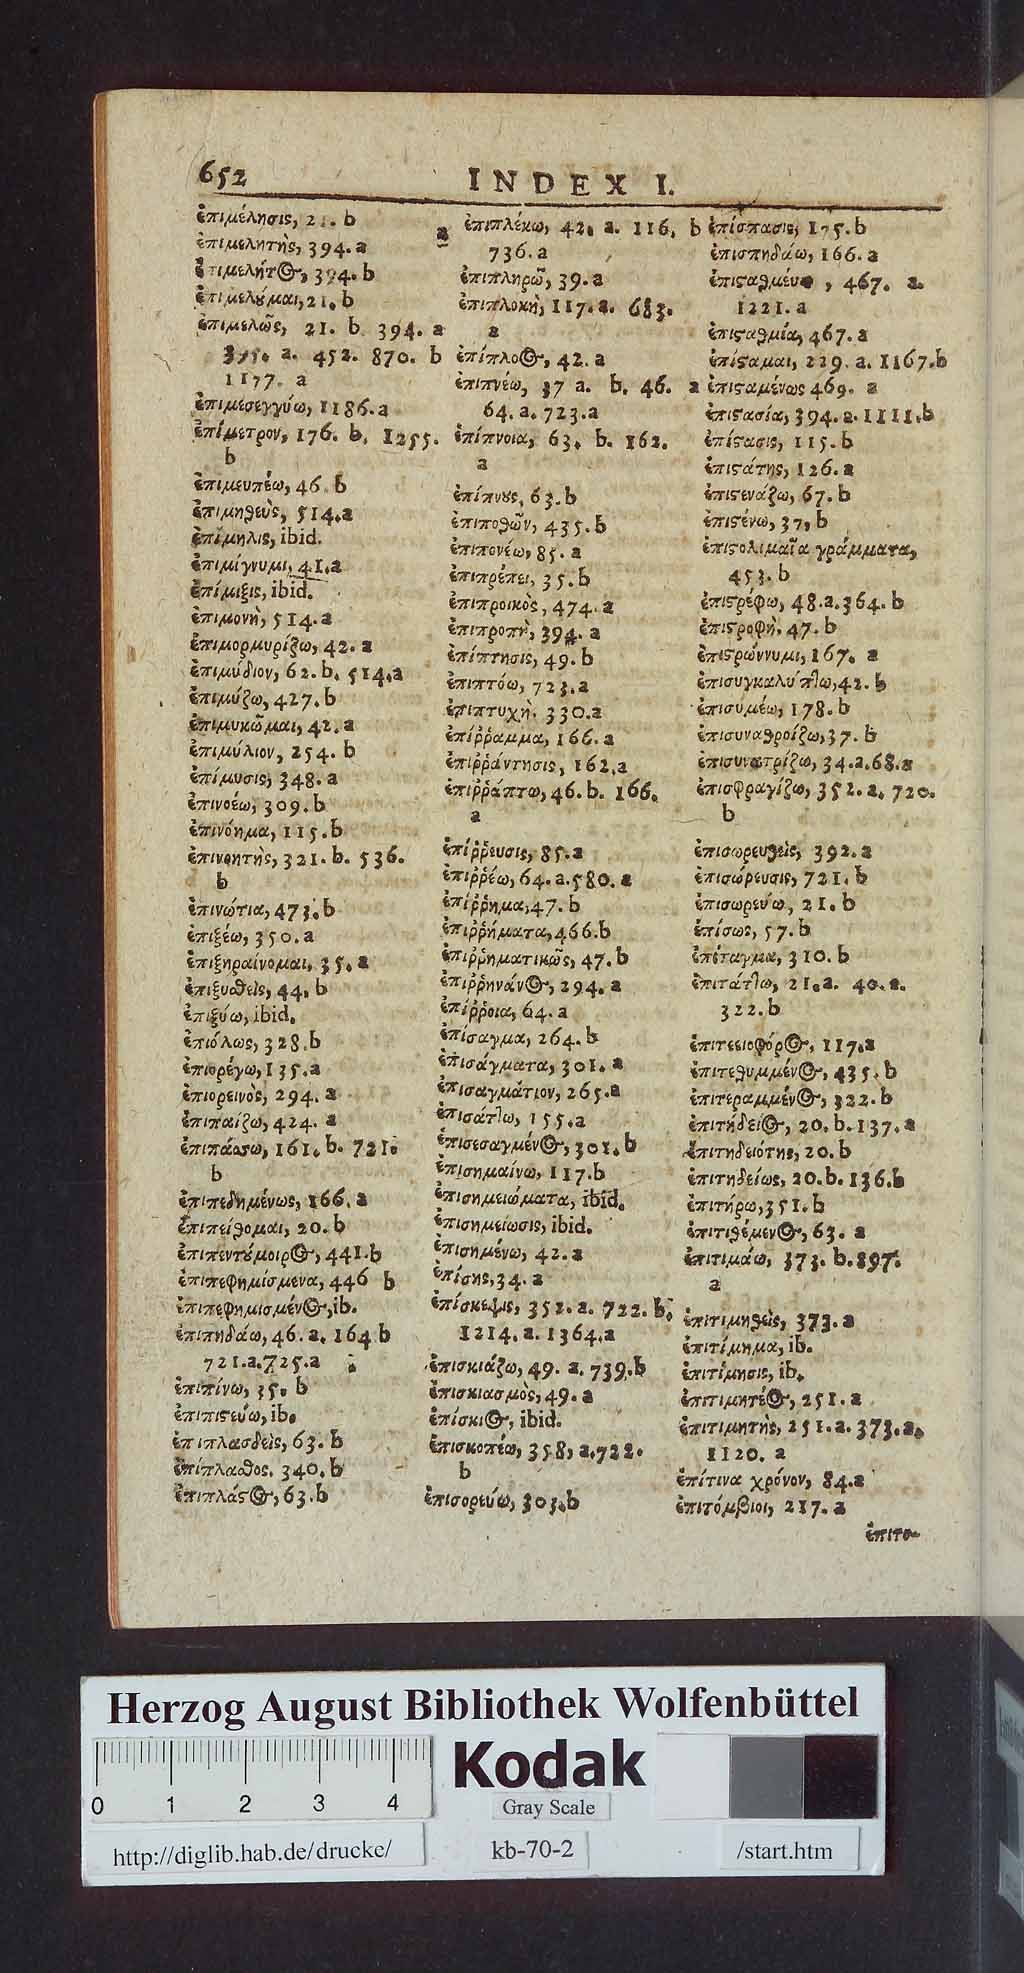 652
INDEX I.
ἐπιμέλησις, 21. b
ἐπιμελητὴς, 394. a
ἐπιμελήτος, 394. b
ἐπιμελοῦμαι, 21. b
ἐπιμελῶς, 21. b 394. a
395. a. 452. 870. b
1177. a
ἐπιμεσεγγύω, 1186. a
ἐπίμετρον, 176. b. 1255.
b
ἐπιμευπέω, 46. b
ἐπιμηθεὺς, 514. a
ἐπίμηλις, ibid.
ἐπιμίγνυμι, 41. a
ἐπίμιξις, ibid.
ἐπιμονὴ, 514. a
ἐπιμορμυρίζω, 42. a
ἐπιμύδιον, 62. b. 514. a
ἐπιμύζω, 427. b
ἐπιμυκῶμαι, 42. a
ἐπιμύλιον, 254. b
ἐπίμυσις, 348. a
ἐπινοέω, 309. b
ἐπινόημα, 115. b
ἐπινοητὴς, 321. b. 536.
b
ἐπινώτια, 473. b
ἐπιξέω, 350. a
ἐπιξηραίνομαι, 35. a
ἐπιξυσθεὶς, 44. b
ἐπιξύω, ibid.
ἐπιόλως, 328. b
ἐπιορέγω, 135. a
ἐπιορεινὸς, 294. a
ἐπιπαίζω, 424. a
ἐπιπάσσω, 161. b. 721.
b
ἐπιπεδημένως, 166. a
ἐπιπείθομαι, 20. b
ἐπιπεντούμοιρος, 441. b
ἐπιπεφημίσμενα, 446 b
ἐπιπεφημισμένος, ib.
ἐπιπηδάω, 46. a. 164 b
721. a. 725. a
ἐπιπίνω, 35. b
ἐπιπιστεύω, ib.
ἐπιπλασθεὶς, 63. b
ἐπίπλασθος. 340. b
ἐπιπλάστος, 63. b
a
ἐπιπλέκω, 42. a. 116. b
736. a
ἐπιπληρῶ, 39. a
ἐπιπλοκὴ, 117. a. 683.
a
ἐπίπλοος, 42. a
ἐπιπνέω, 37 a. b. 46. a
64. a. 723. a
ἐπίπνοια, 63. b. 162.
a
ἐπίπνους, 63. b
ἐπιποθῶν, 435. b
ἐπιπονέω, 85. a
ἐπιπρέπει, 35. b
ἐπιπροικὸς, 474. a
ἐπιπροπὴ, 394. a
ἐπίπτησις, 49. b
ἐπιπτόω, 723. a
ἐπιπτυχὴ. 330. a
ἐπίῤῥαμμα, 166. a
ἐπιῤῥάντησις, 162. a
ἐπιῤῥάπτω, 46. b. 166.
a
ἐπίῤῥευσις, 85. a
ἐπιῤῥέω, 64. a. 580. a
ἐπίῤῥημα, 47. b
ἐπιῤῥήματα, 466. b
ἐπιῤῥηματικῶς, 47. b
ἐπιῤῥηνάνος, 294. a
ἐπίῤῥοια, 64. a
ἐπίσαγμα, 264. b
ἐπισάγματα, 301. a
ἐπισαγμάτιον, 265. a
ἐπισάτλω, 155. a
ἐπισεσαγμένος, 301. b
ἐπισημαίνω, 117. b
ἐπισημειώματα, ibid.
ἐπισημείωσις, ibid.
ἐπισημένω, 42. a
ἐπίσης, 34. a
ἐπίσκεψις, 352. a. 722. b.
1214. a. 1364. a
ἐπισκιάζω, 49. a. 739. b
ἐπισκιασμὸς, 49. a
ἐπίσκιος, ibid.
ἐπισκοπέω, 358, a. 722.
b
ἐπισορεύω, 303. b
ἐπίσπασις, 175. b
ἐπισπηδάω, 166. a
ἐπισταθμένος, 467. a.
1221. a
ἐπισταθμία, 467. a
ἐπίσταμαι, 229. a. 1167. b
ἐπισταμένως 469. a
ἐπιστασία, 394. a. 1111. b
ἐπίστασις, 115. b
ἐπιστάτης, 126. a
ἐπιστενάζω, 67. b
ἐπιστένω, 37, b
ἐπιστολιμαῖα γράμματα,
453. b
ἐπιστρέφω, 48. a. 364. b
ἐπιστροφὴ. 47. b
ἐπιστρώννυμι, 167. a
ἐπισυγκαλύπτω, 42. b
ἐπισυμέω, 178. b
ἐπισυναθροίζω, 37. b
ἐπισυνατρίζω, 34. a. 68. a
ἐπισφραγίζω, 352. a. 720.
b
ἐπισωρευθεὶς, 392. a
ἐπισώρευσις, 721. b
ἐπισωρεύω, 21. b
ἐπίσως, 57. b
ἐπίταγμα, 310. b
ἐπιτάτλω, 21. a. 40. a.
322. b
ἐπιτεσιοφόρος, 117. a
ἐπιτεθυμμένος, 435. b
ἐπιτεραμμένος, 322. b
ἐπιτήδειος, 20. b. 137. a
ἐπιτηδειότης, 20. b
ἐπιτηδείως, 20. b. 136. b
ἐπιτήρω, 351. b
ἐπιτιθέμενος, 63. a
ἐπιτιμάω, 373. b. 897.
a
ἐπιτιμηθεὶς, 373. a
ἐπιτίμημα, ib.
ἐπιτίμησις, ib.
ἐπιτιμητέος, 251. a
ἐπιτιμητὴς, 251. a. 373. a.
1120. a
ἐπίτινα χρόνον, 84. a
ἐπιτόμβιοι, 217. a
ἐπιτο-
Herzog August Bibliothek Wolfenbüttel
Kodak
0 1 2 3 4
Gray Scale
http://diglib.hab.de/drucke/
kb-70-2
/start.htm